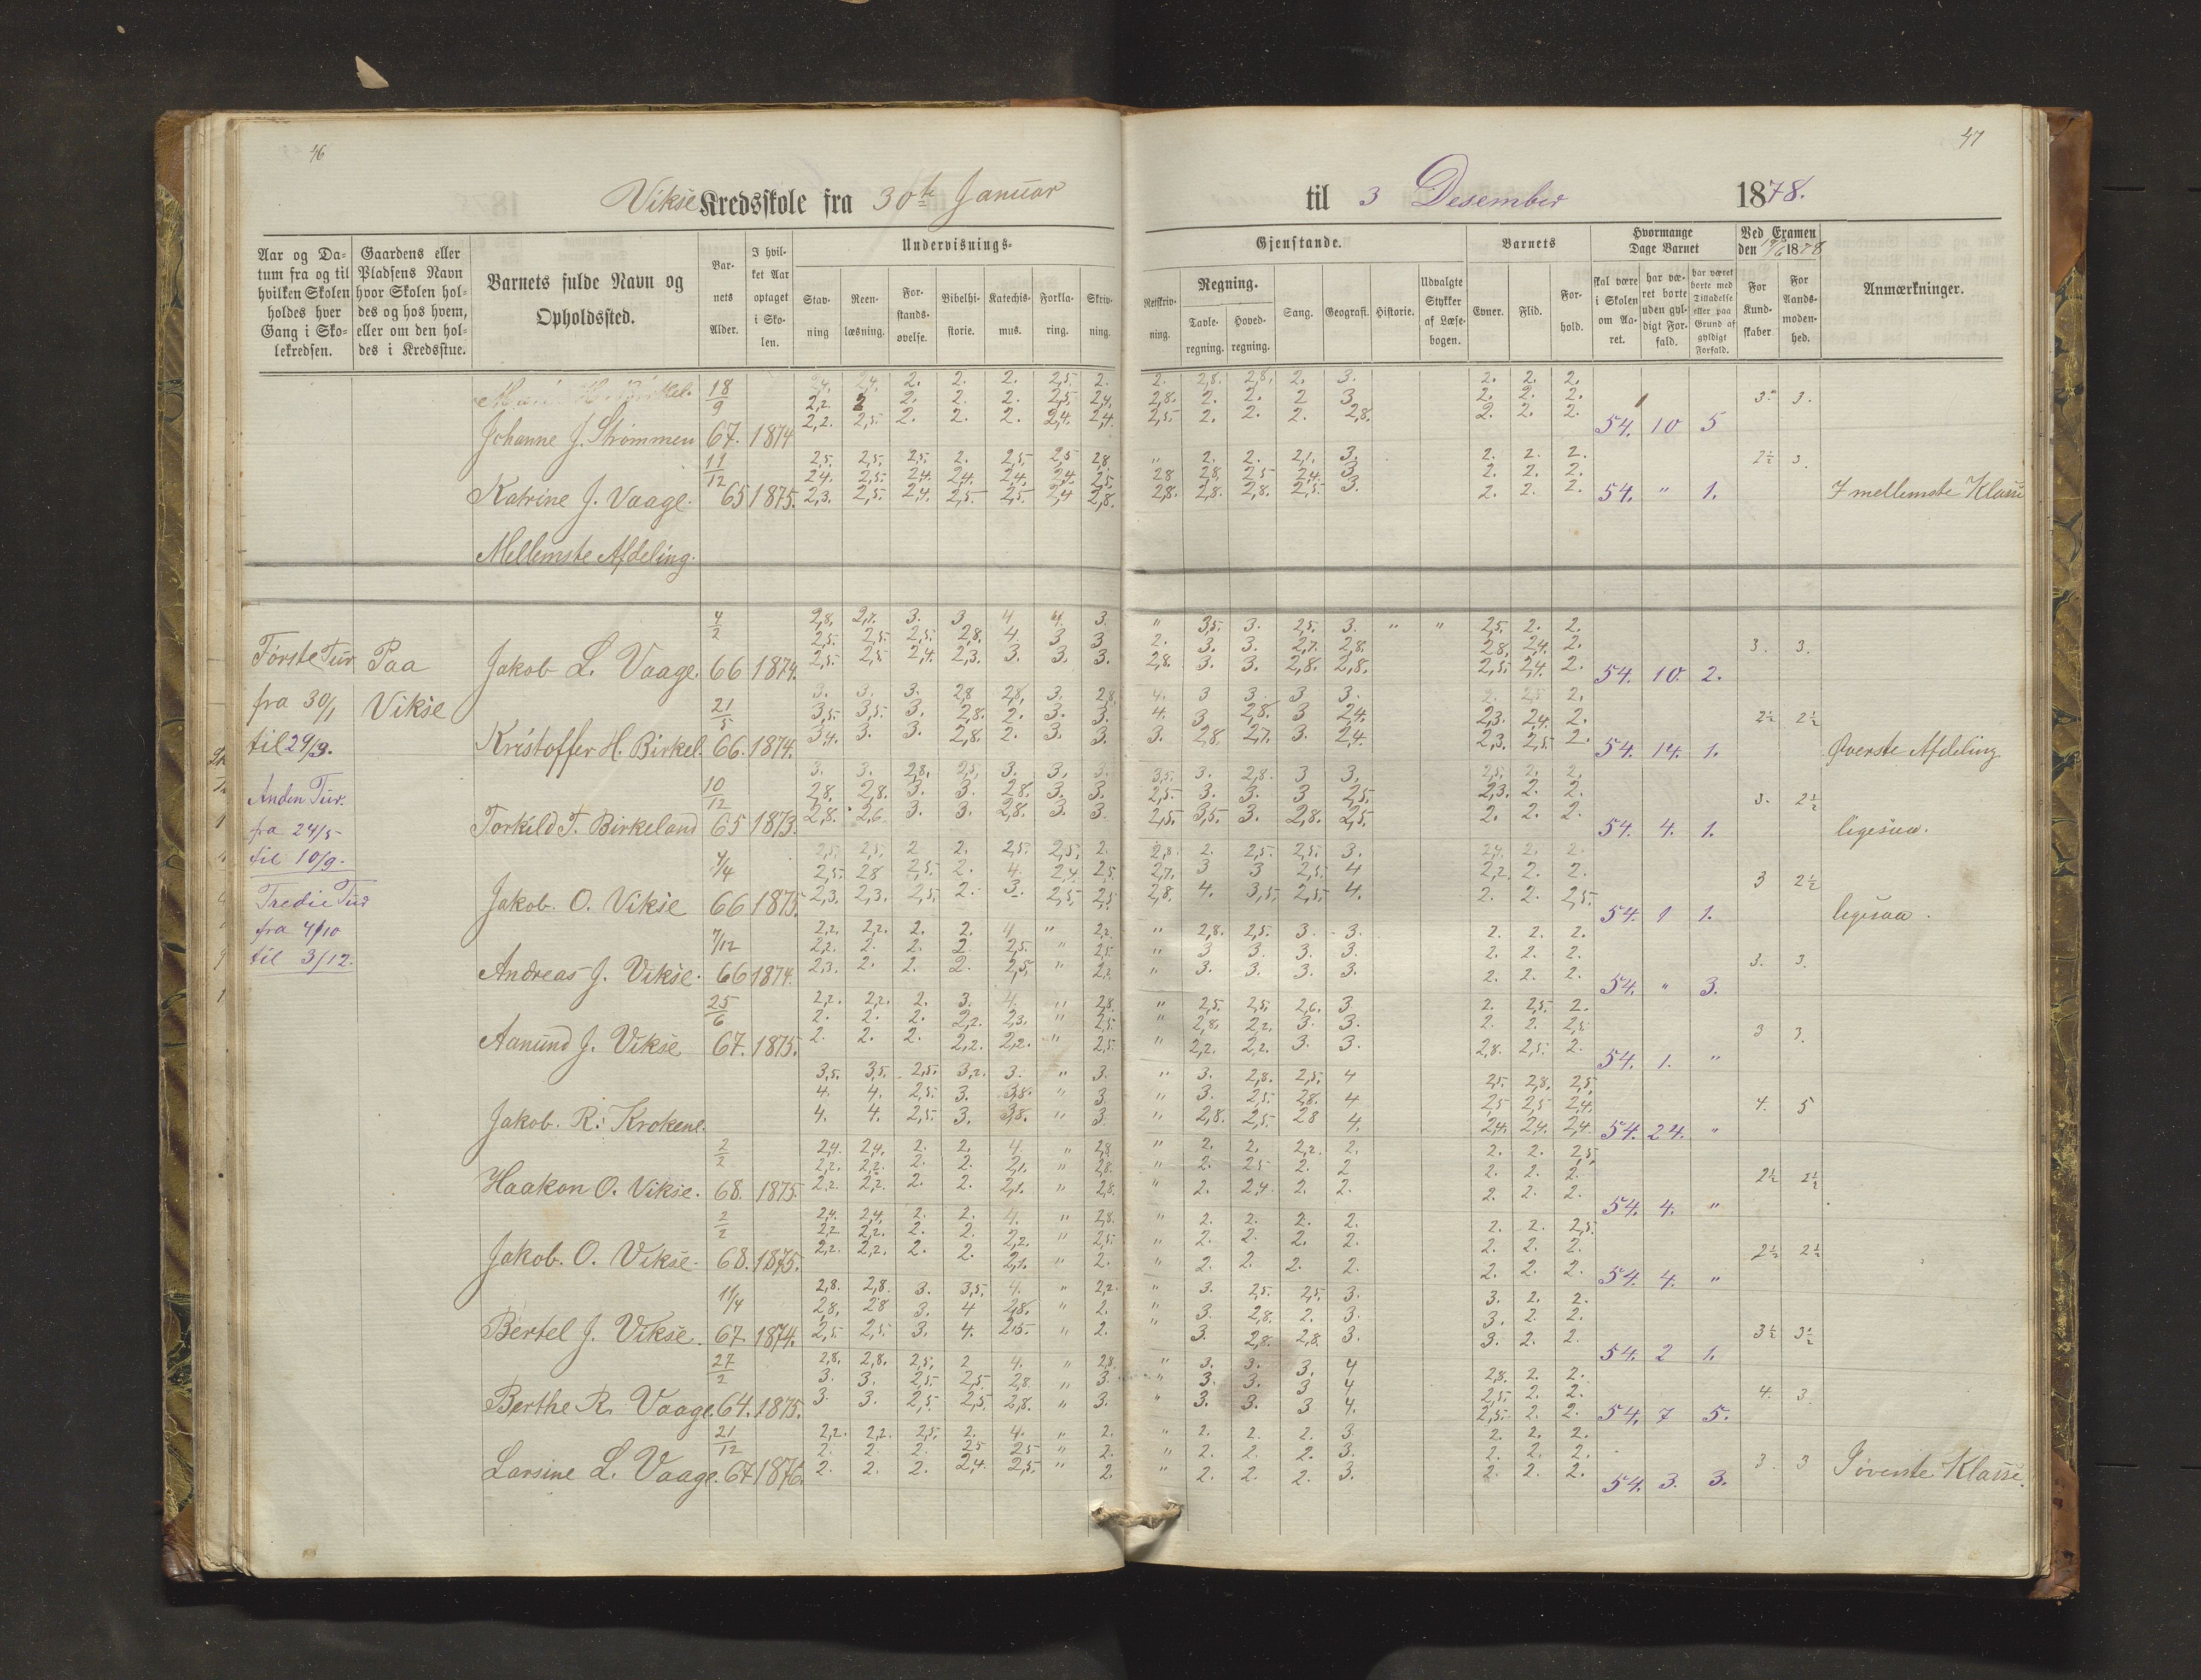 46
47
Vikse Kredsskole fra 30te Januar til 3 Desember 1878.
Aar og Datum fra og til hvilken Skolen holdes hver Gang i Skolekredsen.
Gaardens eller Pladsens Navn hvor Skolen holdes og hos hvem, eller om den holdes i Kredsstue.
Barnets fulde Navn og Opholdssted.
Barnets Alder.
I hvilket Aar optaget i Skolen.
Undervisnings-
Stavning
Reenlæsning.
Forstandsøvelse.
Bibelhistorie.
Katechismus.
Forklaring.
Skrivning.
Gjenstande.
Retskrivning.
Regning.
Tavleregning.
Hovedregning.
Sang.
Geografi.
Historie.
Udvalgte Stykker af Læsebogen.
Barnets
Evner.
Flid.
Forhold.
Hvormange Dage Barnet
skal være i Skolen om Aaret.
har været borte uden gyldigt Forfald.
har været borte med Tilladelse eller paa Grund af gyldigt Forfald.
Ved Examen den 19/6 1878
For Kundskaber
For Aandsmodenhed.
Anmærkninger.
18/9
2. 2. 2. 2,5. 2. 2. 2,8. 2,8. 2. 3. 2. 2. 2.
2,2 2 2. 2. 2. 2,5 2,4. 2,8. 2. 2. 2 3 2. 2. 2. 3. 3.
Johanne J. Strømmen 67. 1874 2,2. 2,5. 2. 2. 2. 2,4. 2,4. 2,5 2. 2. 2. 2,8. 2. 2. 2. 54. 10 5
11/12 2,5. 2,5. 2,5. 2. 2,5. 2,5 2,8 " 2. 2. 2,1. 3. 2. 2. 2. 2½ 3.
2,4. 2,5. 2,4. 2,4. 2,4. 2,4. 2,5. 28 28. 25 2,4. 3 2. 2. 2.
Katrine J. Vaage. 65 1875. 2,3. 2,5. 2,4. 2,5. 2,5. 2,4 2,8. 2,8. 2,8. 2,8. 2,5. 3. 2. 2. 2. 54. " 1. I mellemste Klasse
Mellemste Afdeling.
4/2 2,8. 2,7. 3. 3 4 4. 3. " 3,5. 3. 2,5. 3. " " 2,5. 2. 2.
2,5. 2,5. 2,5. 2,8. 4. 3 3 2. 3. 3. 2,7. 2,8. 2,8. 2,4. 2. 3. 3.
Første Tur Paa Jakob L. Vaage. 66 1874. 2,5. 2,5 2,4. 2,3. 3. 3. 3. 2,8. 3. 3. 2,8. 2,8. 2,5. 2,4. 2. 54. 10. 2.
fra 30/1 Vikse 21/5 3. 3. 3. 2,8 2,8. 3. 2,8. 4. 3 3. 3 3. 2. 2,5 2.
3,5. 3,5. 3. 2,8. 2. 3. 3. 4. 3 2,8. 3 2,4. 2,3. 2,4. 2. 2½ 2½
til 29/3. Kristoffer H. Birkel. 66. 1874. 3,4. 3. 3. 2,8. 2. 3. 3. 3. 2,8. 2,7. 3. 2,4. 2,3. 2,5. 2. 54. 14. 1. Øverste Afdeling
10/12 3. 3. 2,8. 2,5. 3. 3. 3. 3,5. 3. 2,8. 3 3. 2,5. 2. 2.
Anden Tur. 2,8. 2,8. 3. 3. 2,8. 3. 3. 2,5. 3. 3. 3 2,5. 2,3. 2. 2. 3. 2½
fra 24/5 Torkild T. Birkeland 65 1873. 2,8. 2,6. 3. 3. 2,8. 3. 3. 2,5. 3,5. 3. 2,8. 2,5. 2. 2. 2. 54. 4. 1. ligesaa.
til 10/9. 4/4 2,5. 2,5. 2 2. 2,5. 2,5. 2. 2,8. 2. 2,5. 2,5. 3. 2,4. 2. 2.
2,5. 28 2,5. 2. 4. 2,4. 2,5. 2,7. 3 3 2,5. 4 2,2. 2. 2. 3 2½
Tredie Tur Jakob. O. Vikse 66 1875. 2,3. 2,3. 2,5. 2. 3. 2,5. 2,5. 2,8. 4. 3,5. 2,5. 4. 2. 2. 2,5. 54. 1 1. ligesaa.
fra 4/10 7/12 2,2. 2,2. 2. 2. 4 " 2,2. " 2,8. 2,5. 3. 3. 2. 2. 2.
til 3/12. 2,2. 2. 2. 2. 2,5. " 2,5. " 3 3. 3. 3. 2. 2. 2. 3. 3.
Andreas J. Vikse. 66 1874. 2,3. 2. 2. 2. 2,5. " 2,2. " 3. 3. 3. 3. 2. 2. 2. 54. " 3.
25/6 2,2. 2,2. 2. 3. 4. " 2,8. " 2,5. 2,5. 2,6. 3 2. 2,5. 2.
2. 2. 2. 2,2. 2,3. " 2,5. " 2,8. 2,2. 3. 3. 2. 2. 2,5. 3 3.
Aanund J. Vikse 67. 1875. 2. 2. 2. 2,2. 2,2. " 2,5. " 2,2. 2,2. 3. 3. 2,8. 2,5. 2. 54. 1. "
3,5. 3,5. 2,5. 3,2. 3. " 3. " 3. 2,8. 2,5. 4 2,5. 2,8. 2,5.
4. 4. 2,5. 3. 3,8. " 3. " 3. 2,5. 2,8. 4 2,5 2,5 2,4. 4. 5
Jakob. R. Krokene. 4. 4. 2,5. 3. 3,8. " 3. " 2,8. 2,5. 28 4. 2,4. 2,4. 2,4. 54. 24. "
2/2 2,4. 2,4. 2. 2. 4. " 2,8 " 2. 2. 2,2. 2. 2. 2. 2,5.
2,2. 2,2. 2. 2. 2,1. " 2,8. " 2. 2,5 2. 2 2. 2. 2. 2½ 2½
Haakon O. Vikse. 68. 1875. 2,2. 2,2. 2. 2. 2,1. " 2,8. " 2. 2,4. 2. 2. 2. 2. 2. 54. 4. "
2/2 2,4. 2,4. 2. 2. 4. " 2,8. " 2. 2. 2. 2. 2. 2. 2,5.
2,2 2,2. 2. 2. 2,2. " 2,5. " 2. 2. 2. 2. 2. 2. 2. 2½ 2½
Jakob. O. Vikse. 68. 1875. 2,2. 2,2. 2. 2. 2,1. " 2. " 2. 2. 2. 2. 2. 2. 2. 54. 4. "
11/4 2,8. 2,8. 3. 3,5. 4. " 2,2. " 3. 2,5. 2,5. 3. 3. 2. 2.
2,8. 28 3. 4 2,8. " 2. " 3. 2,8. 2. 3. 3. 2. 2. 3½ 3½
Bertel J. Vikse. 67. 1874. 2,5. 2,5. 3. 4. 2,5. " 2. " 3. 2,8. 2,8. 3. 3. 2. 2. 54. 2 1.
27/2 2,8. 2,8. 2,5. 2 4. " 2,8. " 3. 3. 3. 4 2,8. 2. 2.
3. 3. 2,5. 2,5 2,8. " 3. " 3. 3. 3 4 2,5. 2. 2. 4. 3.
Berthe R. Vaage. 64. 1875. 3. 3. 2,5. 2,5. 2,8. " 3. " 3. 3. 3 4. 2,5. 2. 2. 54. 7 5.
21/12 2,2. 2,2. 2,5. 2. 4. " 2. " 2. 2. 2. 3 2. 2. 2.
2. 2. 2. 25 25 " 2. " 2. 2. 2. 3. 2. 2. 2. 3. 3
Larsine L. Vaage. 67 1876. 2. 2. 2. 2,4. 2,5. " 2. " 2. 2. 2. 3. 2. 2. 2. 54. 3. 3. I øverste Klasse.